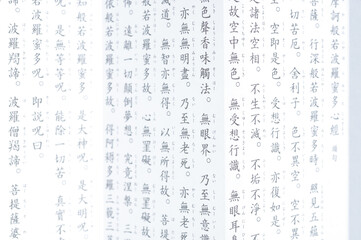 摩訶般若波羅蜜多心經
菩薩。行深般若波羅蜜多時。照見五蘊
一切苦厄。舍利子。色不異空。空不異
空。空即是色。受想行識。亦復如是
是諸法空相。不生不滅。不垢不淨。不
故空中無色。無受想行識。無眼耳鼻
色聲香味觸法。無眼界。乃至無意
亦無無明盡。乃至無老死。亦無老死
滅道。無智亦無得。以無所得故。菩提
般若波羅蜜多故。心無罣礙。無罣礙故。
怖。遠離一切顛倒夢想。究竟涅槃。三
依般若波羅蜜多故。得阿耨多羅三藐三菩
知般若波羅蜜多。是大神呪。是大明呪
呪。是無等等呪。能除一切苦。真實不
般若波羅蜜多呪。即說呪曰
諦。波羅羯諦。波羅僧羯諦。菩提薩婆